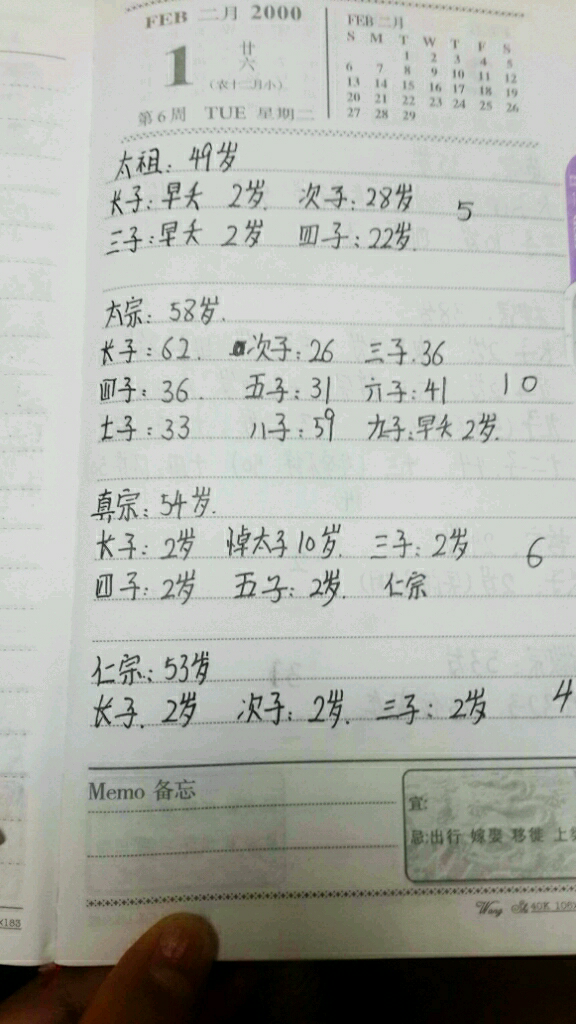 FEB 二月 2000
1
廿六
(农十二月小)
第6周 TUE 星期二
FEB 二月
S M T W T F S
1 2 3 4 5
6 7 8 9 10 11 12
13 14 15 16 17 18 19
20 21 22 23 24 25 26
27 28 29
太祖: 49岁
长子:早夭 2岁. 次子:28岁 5
三子:早夭 2岁 四子:22岁.
太宗: 58岁.
长子:62. 次子:26 三子.36
四子:36. 五子:31 六子:41 10
七子:33 八子:59 九子:早夭2岁.
真宗:54岁.
长子:2岁 悼太子10岁. 三子:2岁 6
四子:2岁 五子:2岁. 仁宗
仁宗:53岁
长子.2岁 次子:2岁. 三子:2岁 4
Memo 备忘
宜:
忌:出行 嫁娶 移徙 上
40K
X183